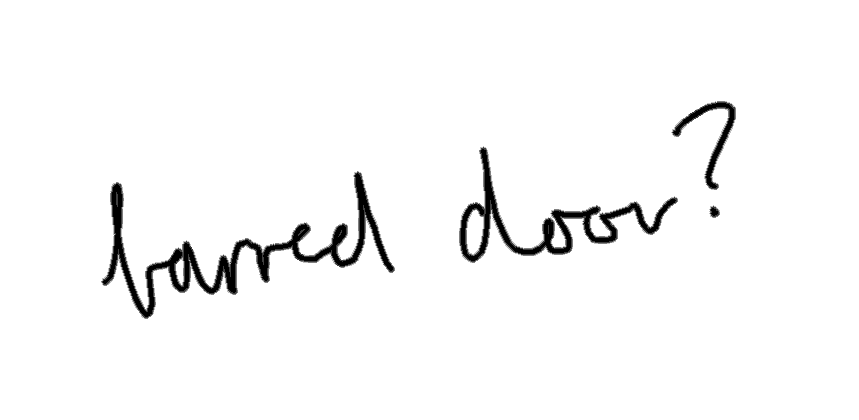 barred door?